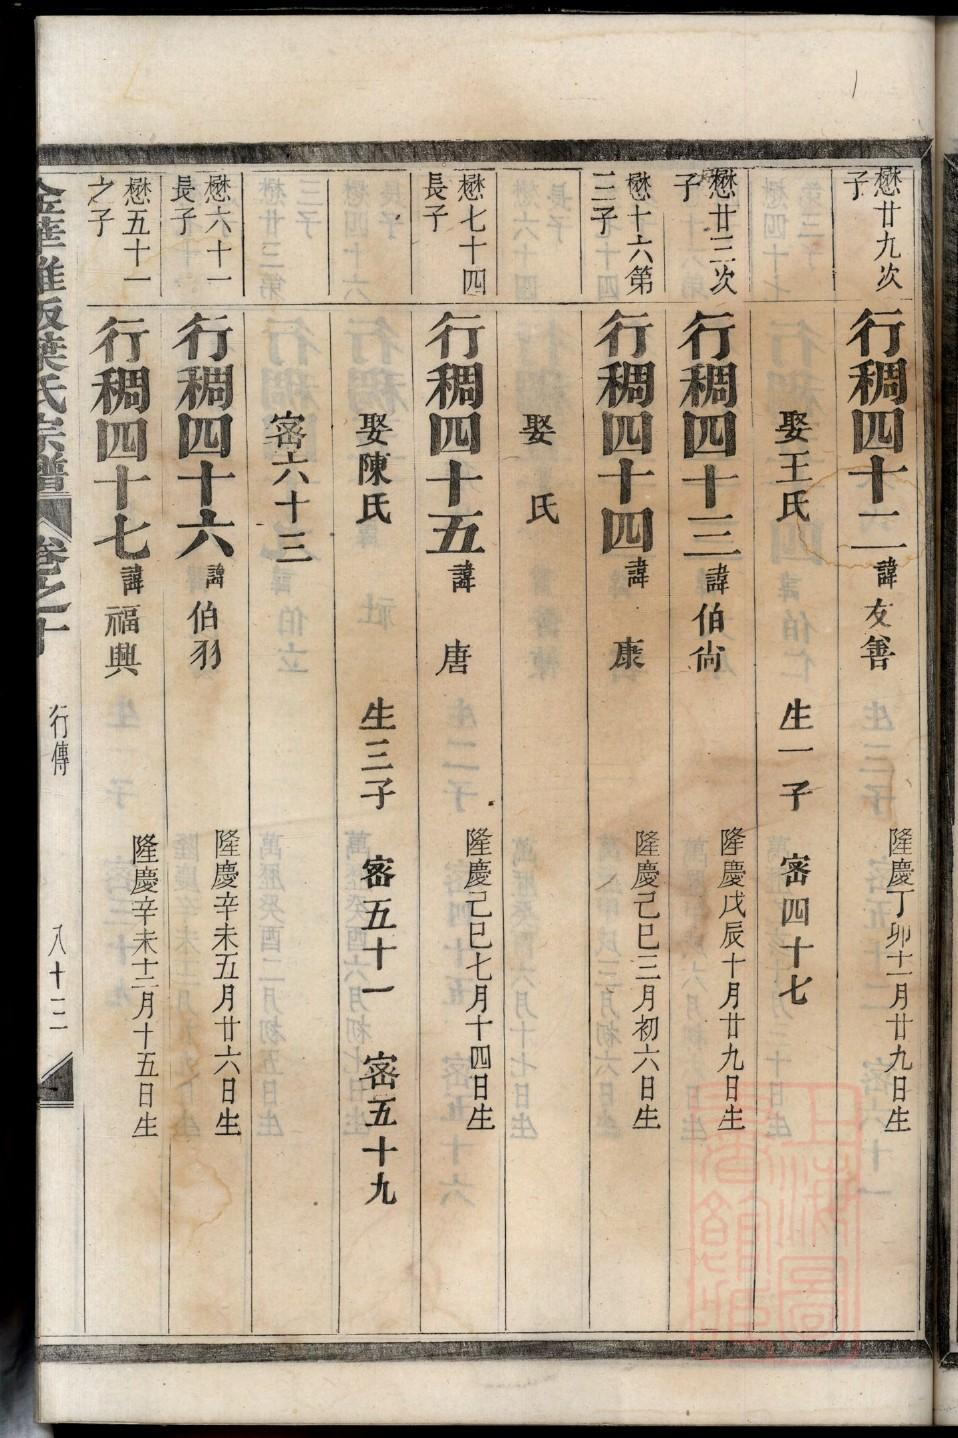 懋廿九次子
行稠四十二 諱友善 隆慶丁卯十一月廿九日生
娶王氏 生一子 密四十七
懋廿三次子
行稠四十三 諱伯尙 隆慶戊辰十月廿九日生
懋十六第三子
行稠四十四 諱康 隆慶己巳三月初六日生
娶 氏
懋七十四長子
行稠四十五 諱唐 隆慶己巳七月十四日生
娶陳氏 生三子 密五十一 密五十九
密六十三
懋六十一長子
行稠四十六 諱伯羽 隆慶辛未五月廿六日生
懋五十一之子
行稠四十七 諱福興 隆慶辛未十二月十五日生
金華雅畈葉氏宗譜 卷之十 行傳 八十三